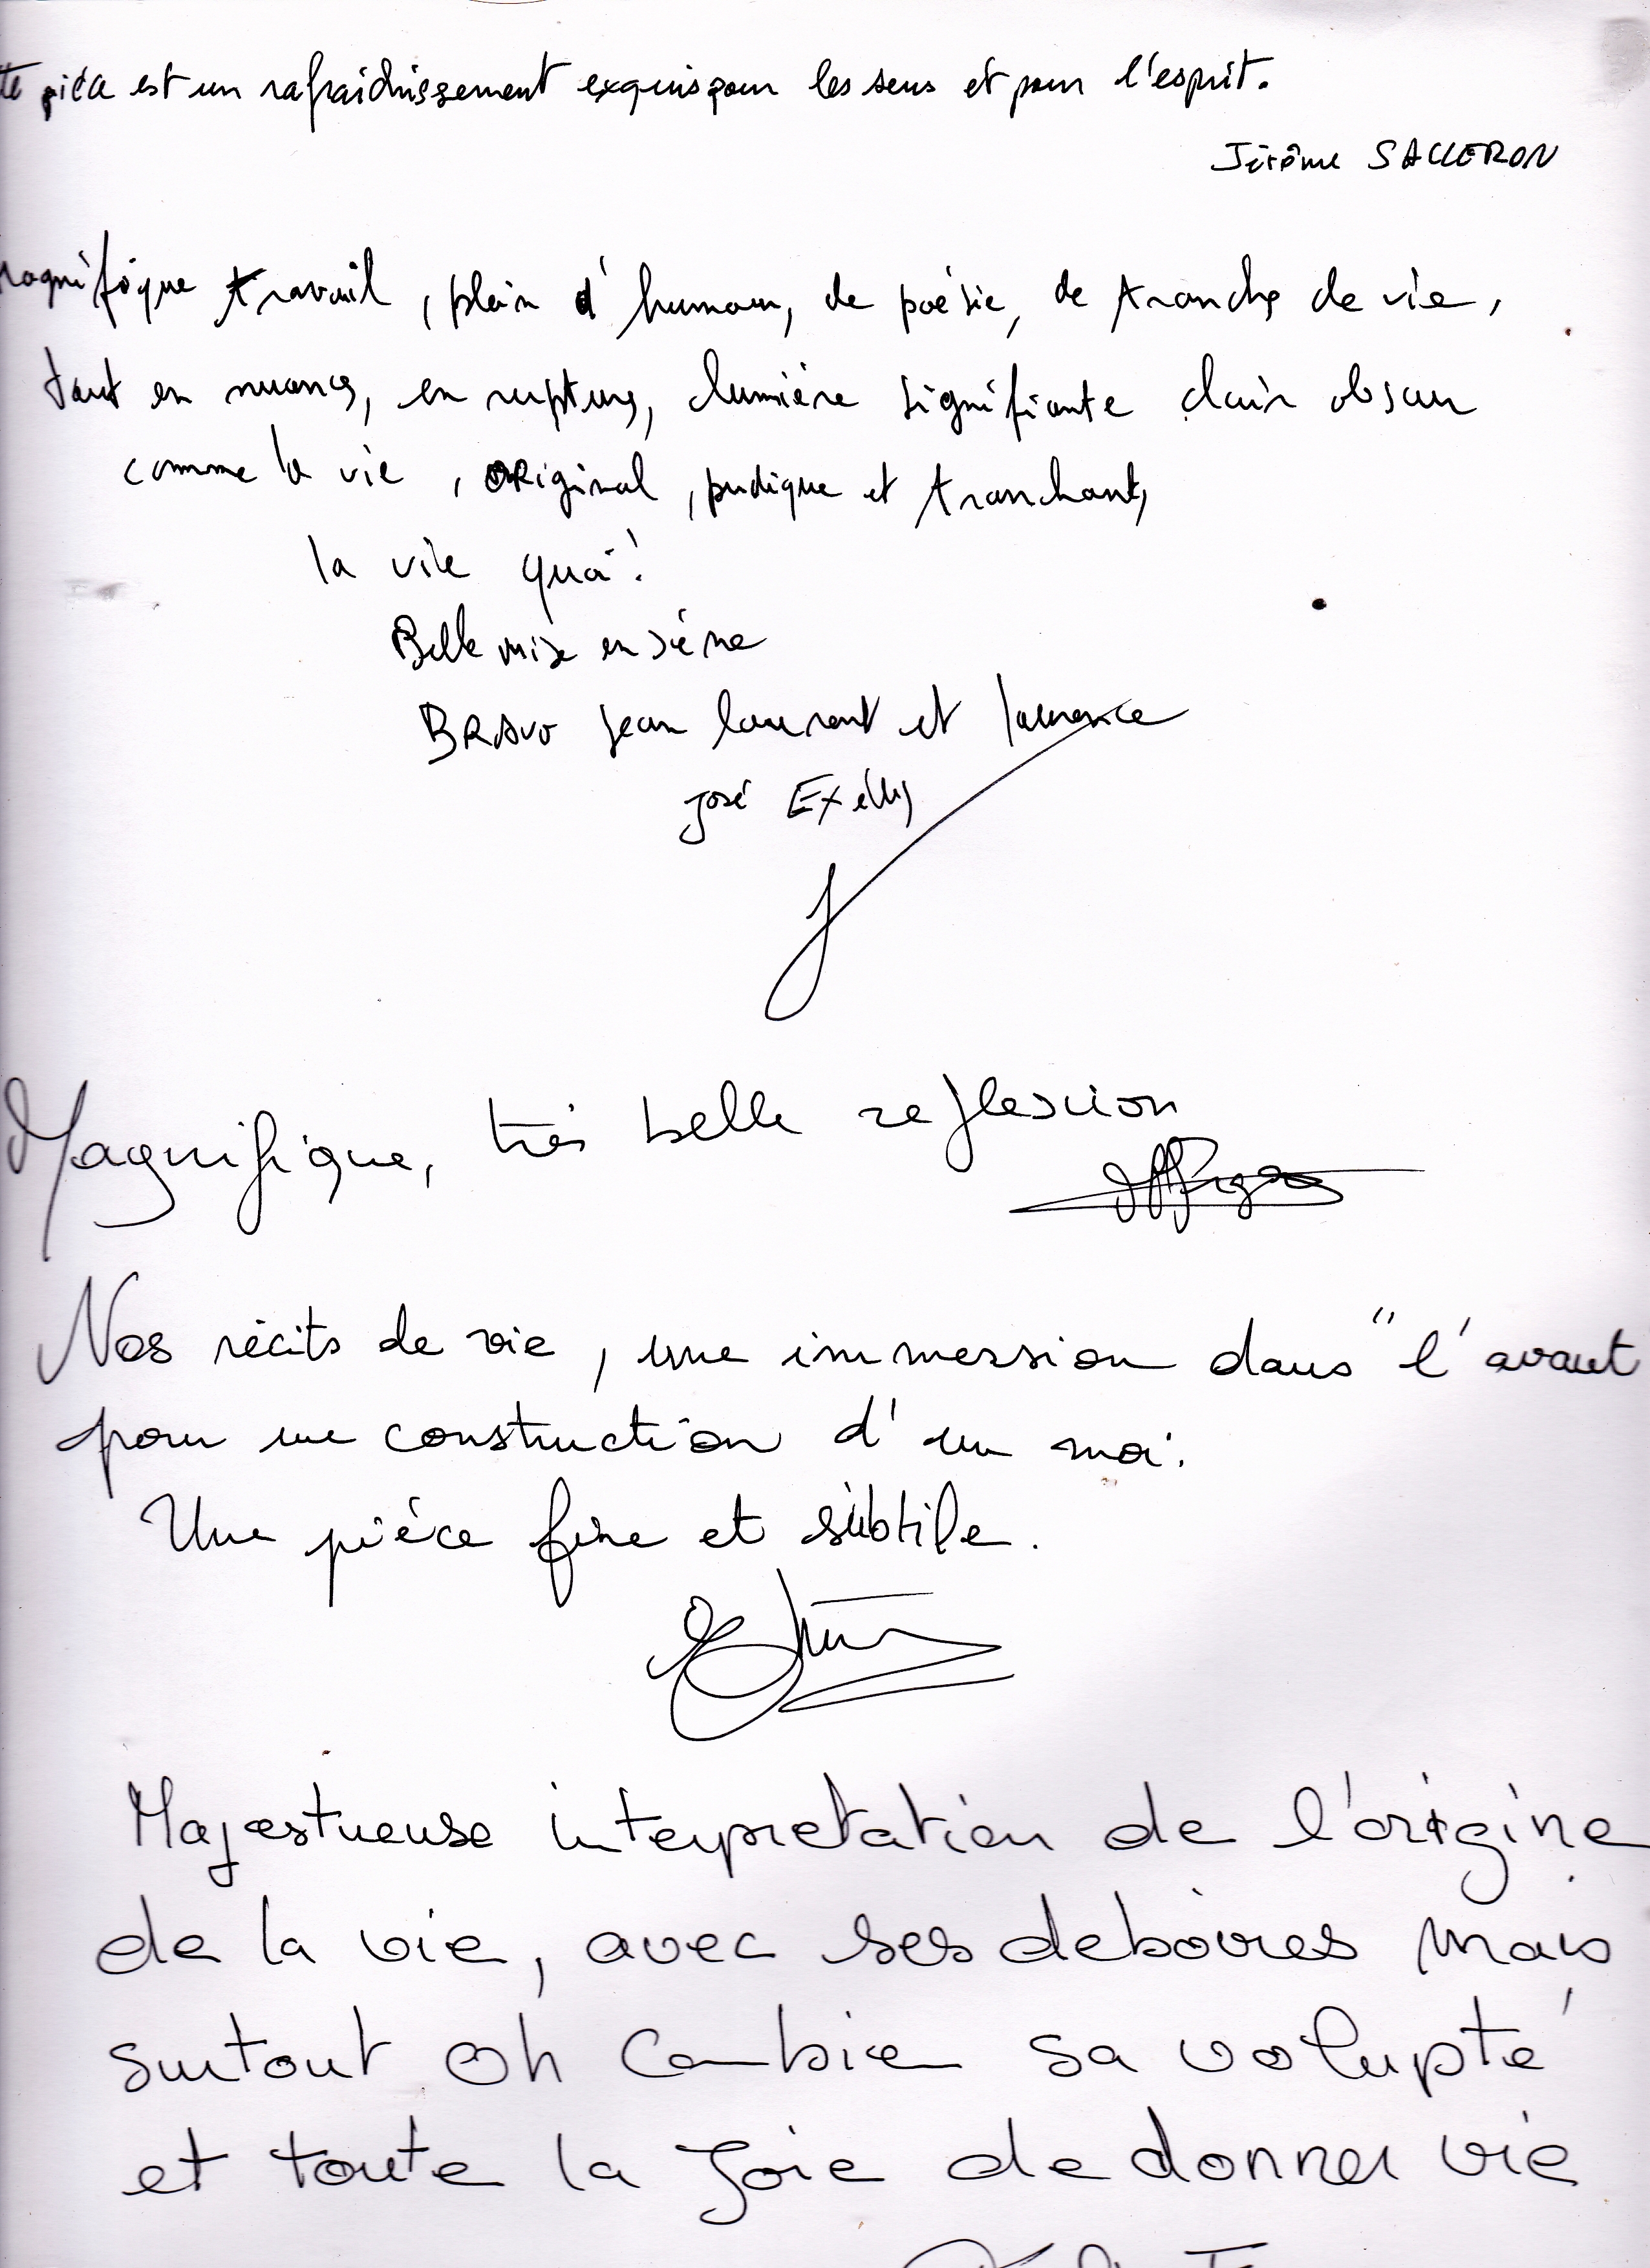 te pièce est un rafraichissement exquis pour les sens et pour l'esprit.
Jérôme SALLERON
magnifique travail, plein d'humour, de poésie, de tranches de vie,
tout en nuances, en ruptures, lumière signifiante clair obscur
comme la vie, original, pudique et tranchant,
la vie quoi!
Belle mise en scène
BRAVO Jean laurent et laurence
José Exélis
Magnifique, très belle reflexion
Nos récits de vie, une immersion dans "l'avant
pour une construction d'un moi.
Une pièce fine et subtile.
Majestueuse interpretation de l'origine
de la vie, avec ses deboires mais
surtout oh combien sa volupté
et toute la joie de donner vie